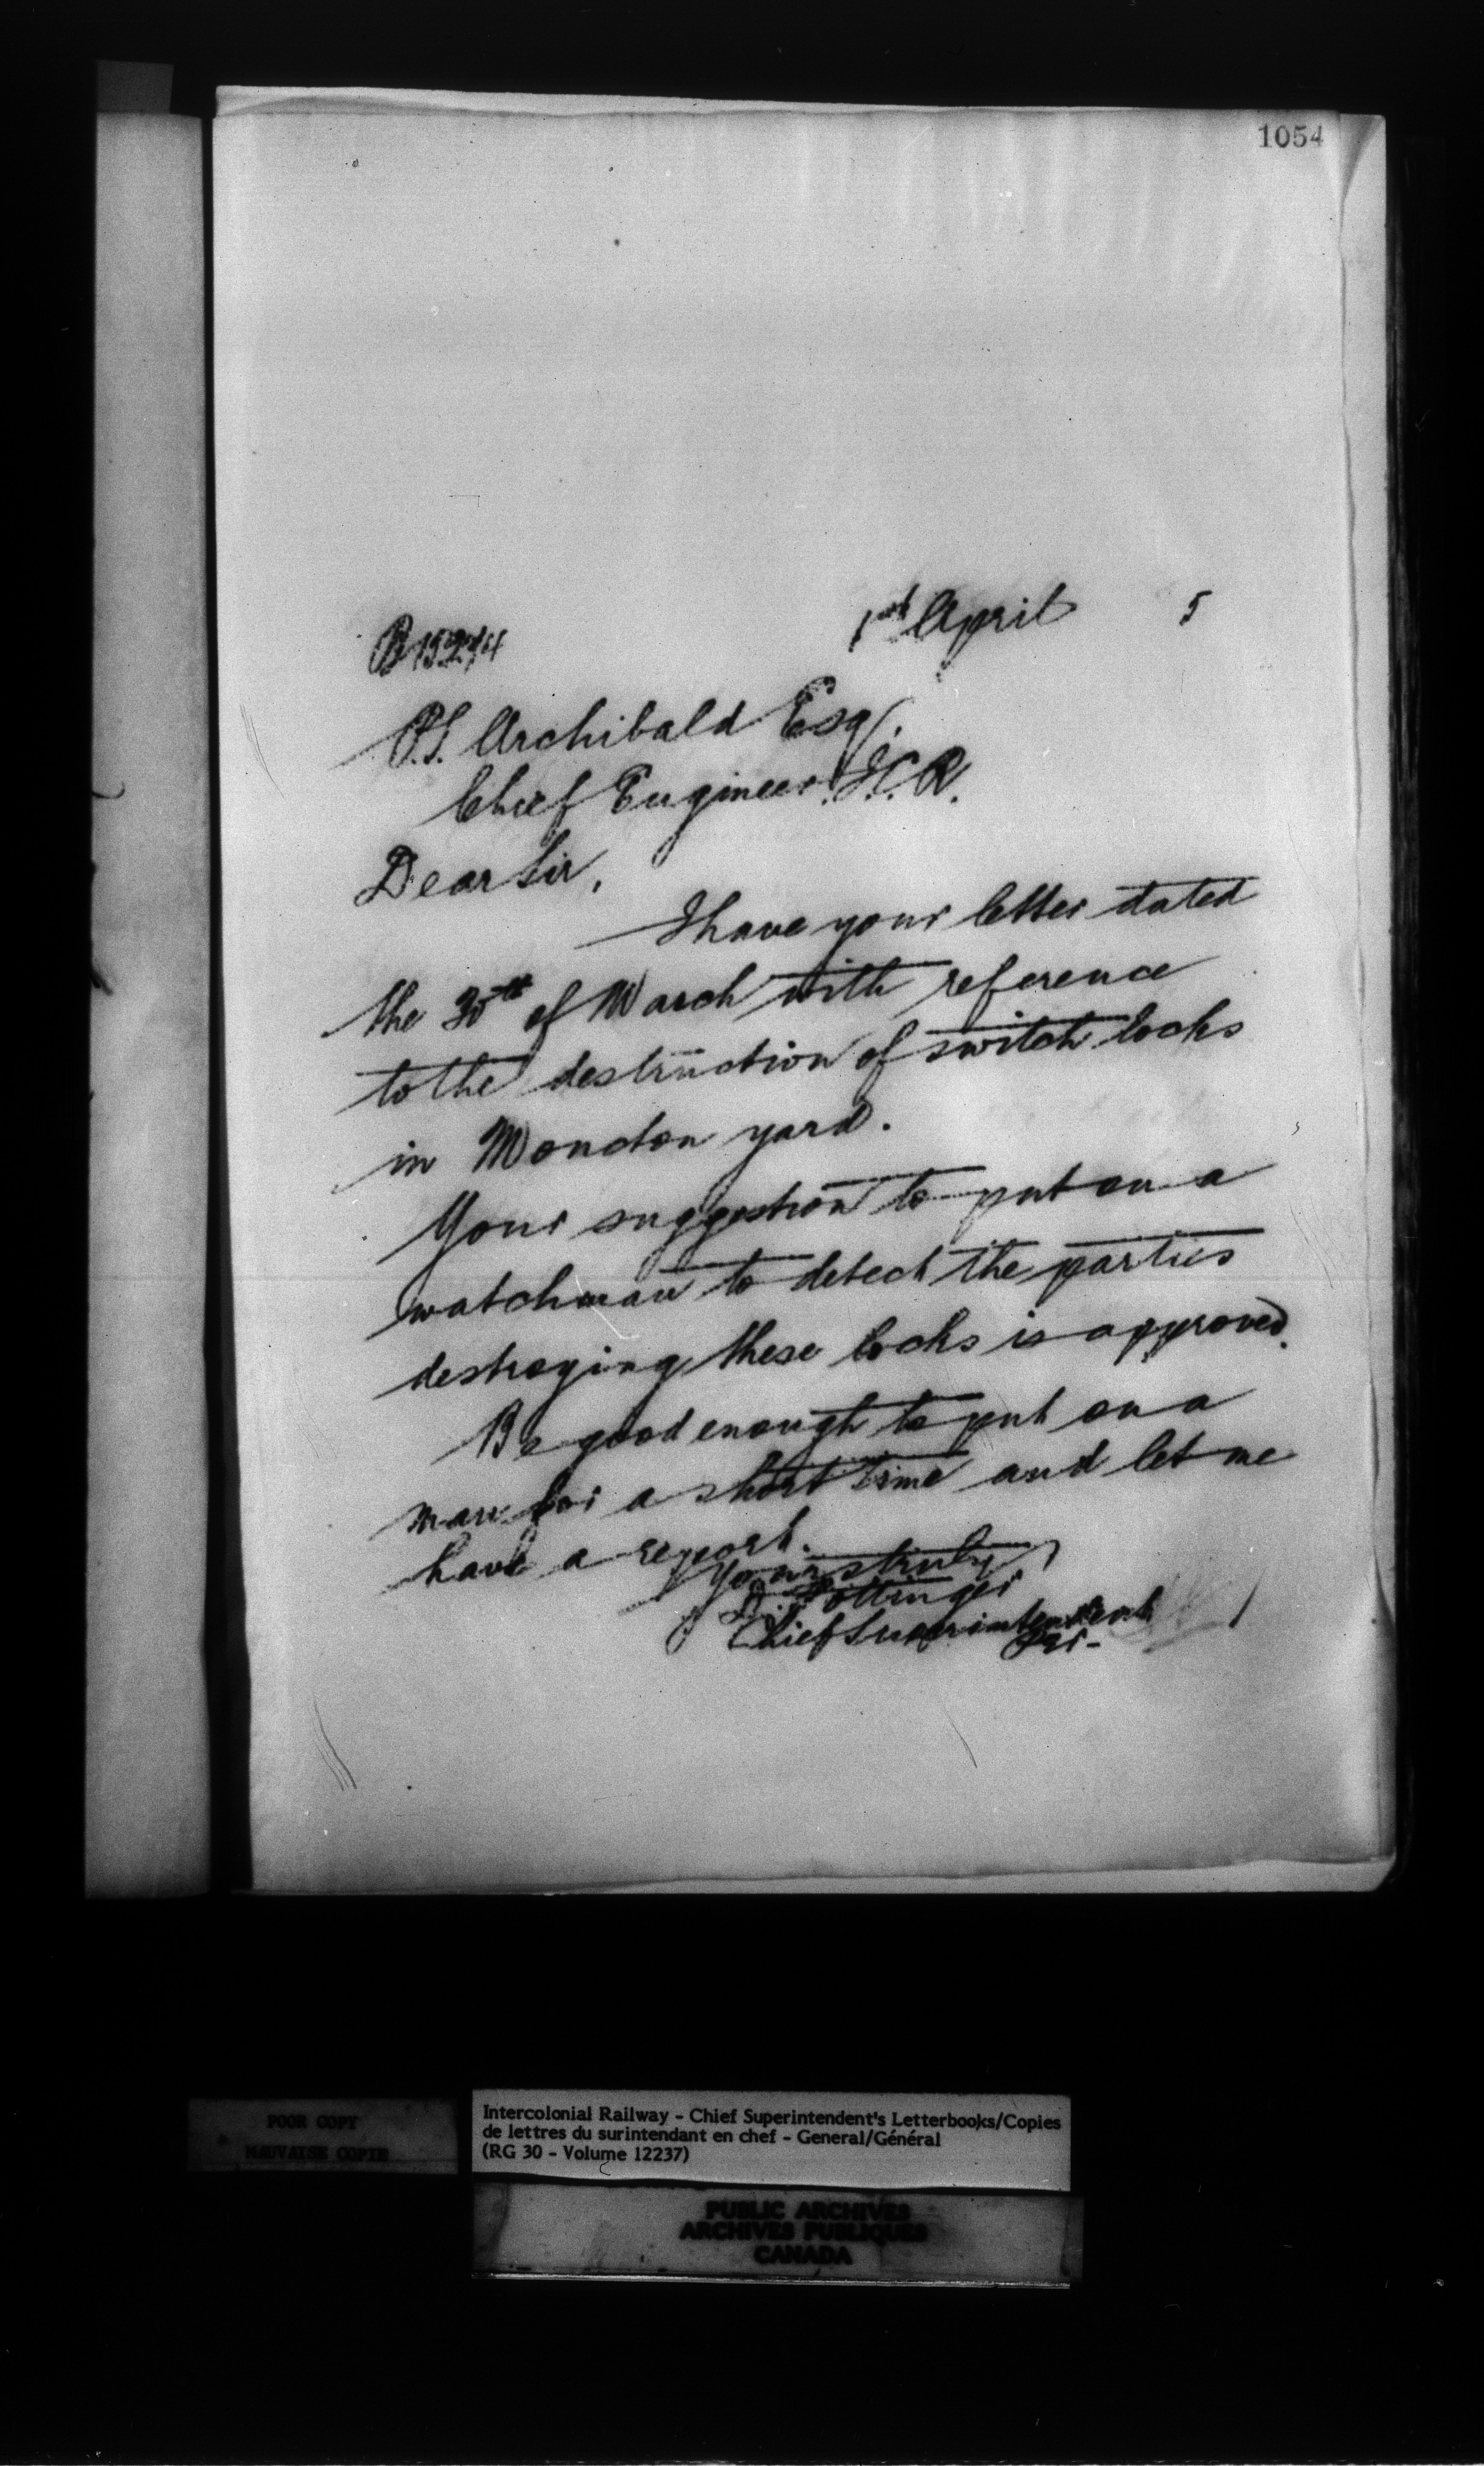 1054
1st April 5
B15274
P.S. Archibald Esq.
Chief Engineer I.C.R.
Dear Sir,
I have your letter dated
the 30th of March with reference
to the destruction of switch locks
in Moncton yard.
Your suggestion to put on a
watchman to detect the parties
destroying these locks is approved.
Be good enough to put on a
man for a short time and let me
have a report.
Yours truly
D. Pottinger
Chief Superintendent
Per-
POOR COPY
MAUVAISE COPIE
Intercolonial Railway - Chief Superintendent's Letterbooks/Copies
de lettres du surintendant en chef - General/Général
(RG 30 - Volume 12237)
PUBLIC ARCHIVES
ARCHIVES PUBLIQUES
CANADA